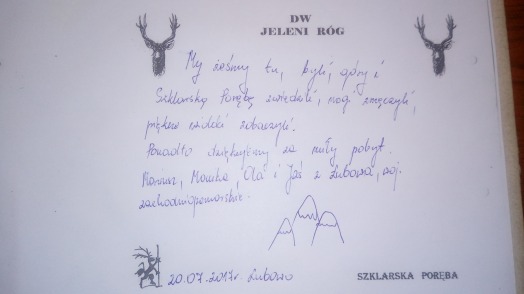 DW
JELENI RÓG
My żeśmy tu, byli, góry i
Szklarską Porębę zwiedzili, nogi zmęczyli,
piękne widoki zobaczyli.
Ponadto dziękujemy za miły pobyt.
Mariusz, Monika, Ola i Jaś z Łubowa, woj.
zachodniopomorskie.
20.07.2017r. Łubowo
SZKLARSKA PORĘBA